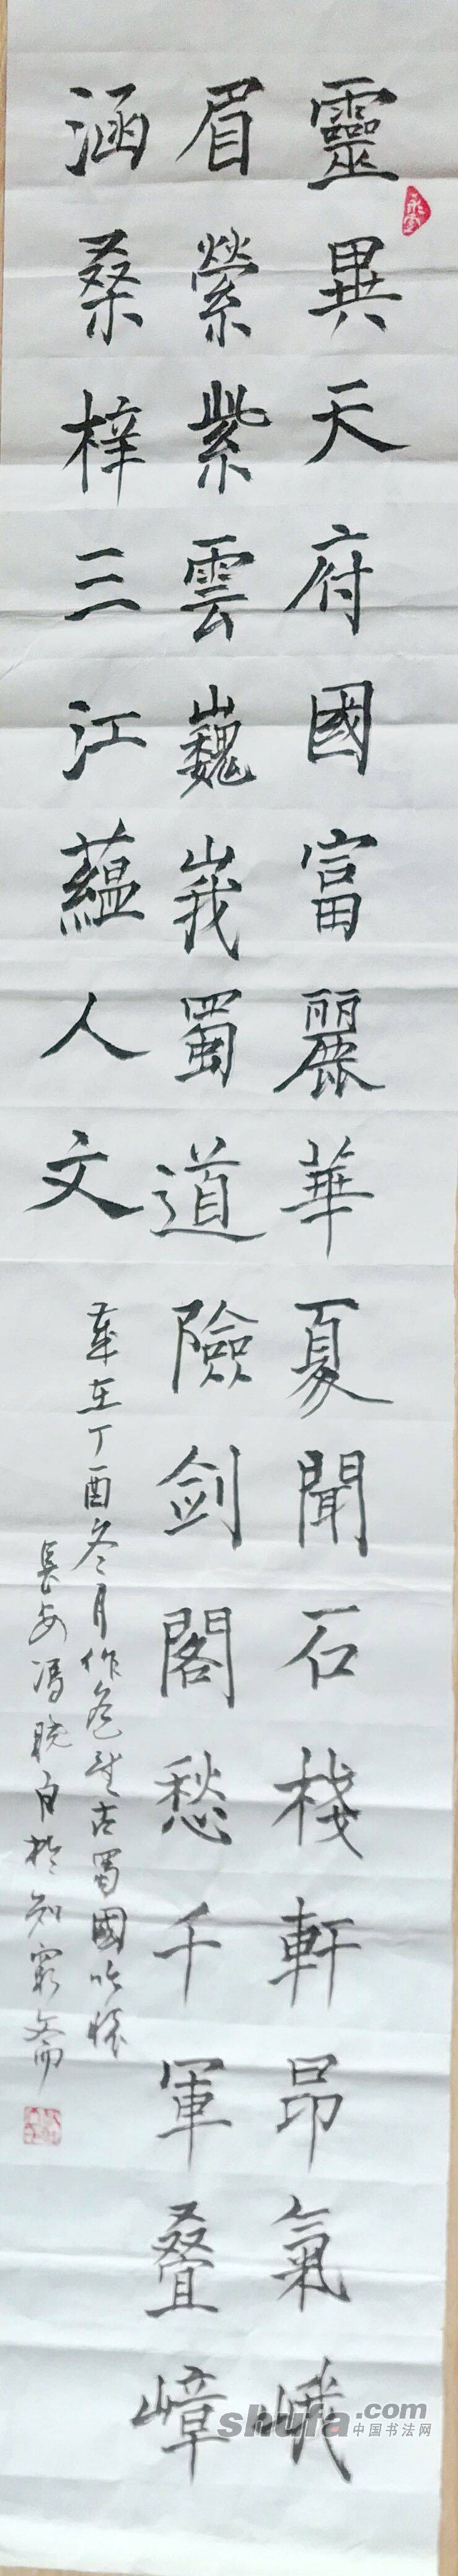 靈異天府國富麗華夏聞石棧軒昂氣峨
眉縈紫雲巍峩蜀道險剑閣愁千軍叠嶂
涵桑梓三江蘊人文
歲在丁酉冬月作 古蜀國吟懷
長安馮晓白於知窮斋
shufa.com
中国书法网